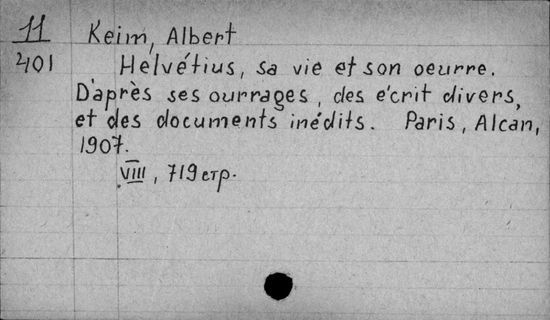 11 Keim, Albert
401 Helvétius, sa vie et son oeurre.
D'après ses ourrages, des écrit divers,
et des documents inédits. Paris, Alcan,
1907.
VIII, 719 стр.